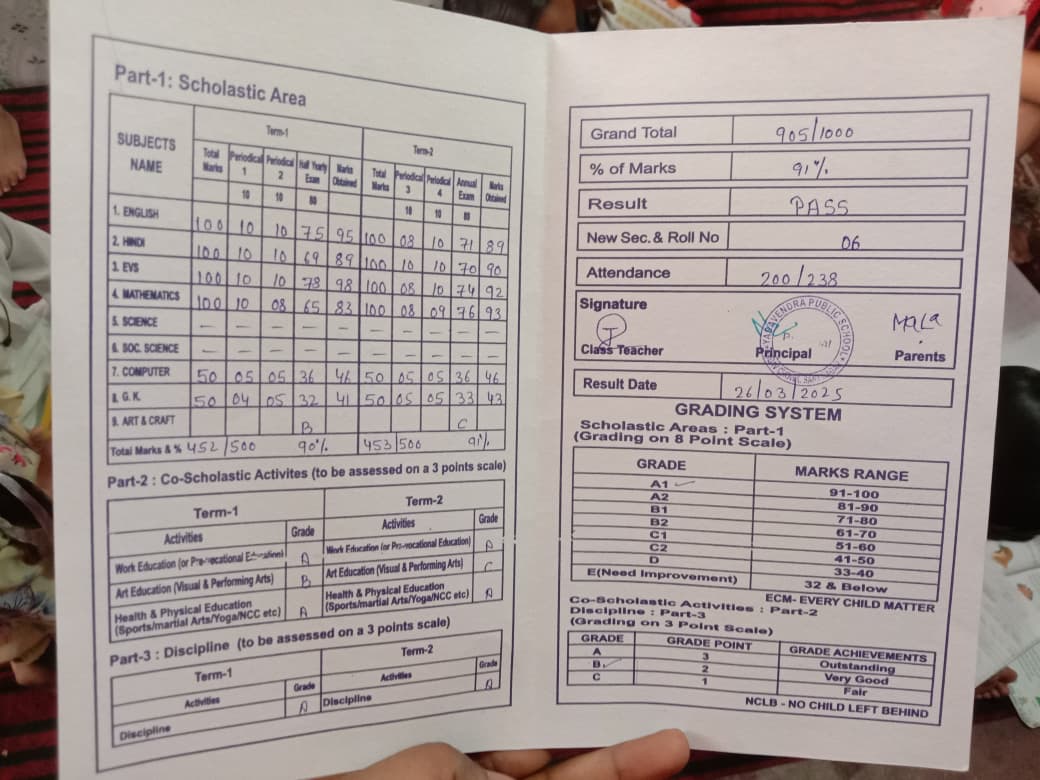 Part-1: Scholastic Area
SUBJECTS NAME Term-1 Term-2
Total Marks Periodical 1 Periodical 2 Half Yearly Exam Marks Obtained Total Marks Periodical 3 Periodical 4 Annual Exam Marks Obtained
10 10 80 10 10 80
1. ENGLISH 100 10 10 75 95 100 08 10 71 89
2. HINDI 100 10 10 69 89 100 10 10 70 90
3. EVS 100 10 10 78 98 100 08 10 74 92
4. MATHEMATICS 100 10 08 65 83 100 08 09 76 93
5. SCIENCE — — — — — — — — — —
6. SOC. SCIENCE — — — — — — — — — —
7. COMPUTER 50 05 05 36 46 50 05 05 36 46
8. G. K. 50 04 05 32 41 50 05 05 33 43
9. ART & CRAFT B C
Total Marks & % 452/500 90% 453/500 91%
Part-2 : Co-Scholastic Activites (to be assessed on a 3 points scale)
Term-1 Term-2
Activities Grade Activities Grade
Work Education (or Pre-vocational Education) A Work Education (or Pre-vocational Education) A
Art Education (Visual & Performing Arts) B Art Education (Visual & Performing Arts) C
Health & Physical Education A Health & Physical Education A
(Sports/martial Arts/Yoga/NCC etc) (Sports/martial Arts/Yoga/NCC etc)
Part-3 : Discipline (to be assessed on a 3 points scale)
Term-1 Term-2
Activities Grade Activities Grade
Discipline A Discipline A
Grand Total 905/1000
% of Marks 91%
Result PASS
New Sec. & Roll No 06
Attendance 200/238
Signature
YADAVENDRA PUBLIC SCHOOL
Mala
Class Teacher Principal Parents
Result Date 26/03/2025
GRADING SYSTEM
Scholastic Areas : Part-1
(Grading on 8 Point Scale)
GRADE MARKS RANGE
A1 ✓ 91-100
A2 81-90
B1 71-80
B2 61-70
C1 51-60
C2 41-50
D 33-40
E(Need Improvement) 32 & Below
ECM- EVERY CHILD MATTER
Co-Scholastic Activities : Part-2
Discipline : Part-3
(Grading on 3 Point Scale)
GRADE GRADE POINT GRADE ACHIEVEMENTS
A 3 Outstanding
B ✓ 2 Very Good
C 1 Fair
NCLB - NO CHILD LEFT BEHIND